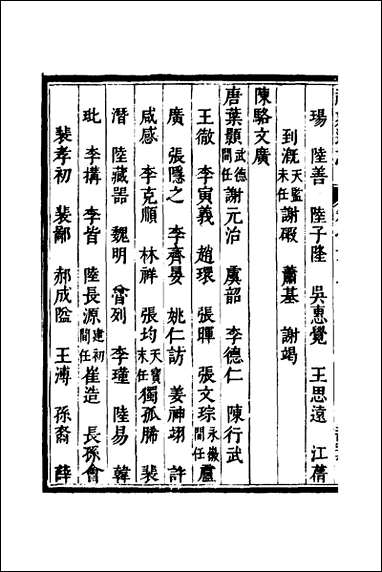 瑒 陸善 陸子隆 吳惠覺 王思遠 江蒨
到溉天監末任 謝嘏 蕭基 謝竭
陳駱文廣
唐葉顥武德間任 謝元治 虞韶 李德仁 陳行武
王徹 李寅義 趙瓌 張暉 張文琮永徽間任 盧
廣 張隱之 李齊晏 姚仁訪 姜神翊 許
咸感 李克順 林祥 張均天寶末任 獨孤勝 裴
潛 陸藏器 魏明 曾列 李瑾 陸易 韓
玭 李搆 李皆 陸長源建初間任 崔造 長孫會
裴孝初 裴鄗 郝成隘 王溥 孫裔 薛